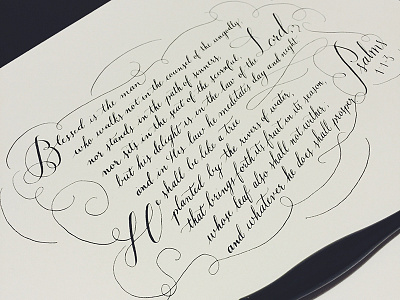 Blessed is the man
who walks not in the counsel of the ungodly,
nor stands in the path of sinners,
nor sits in the seat of the scornful;
but his delight is in the law of the Lord,
and in His law he meditates day and night.
He shall be like a tree
planted by the rivers of water,
that brings forth its fruit in its season,
whose leaf also shall not wither;
and whatever he does shall prosper.
Psalms
1:1-3